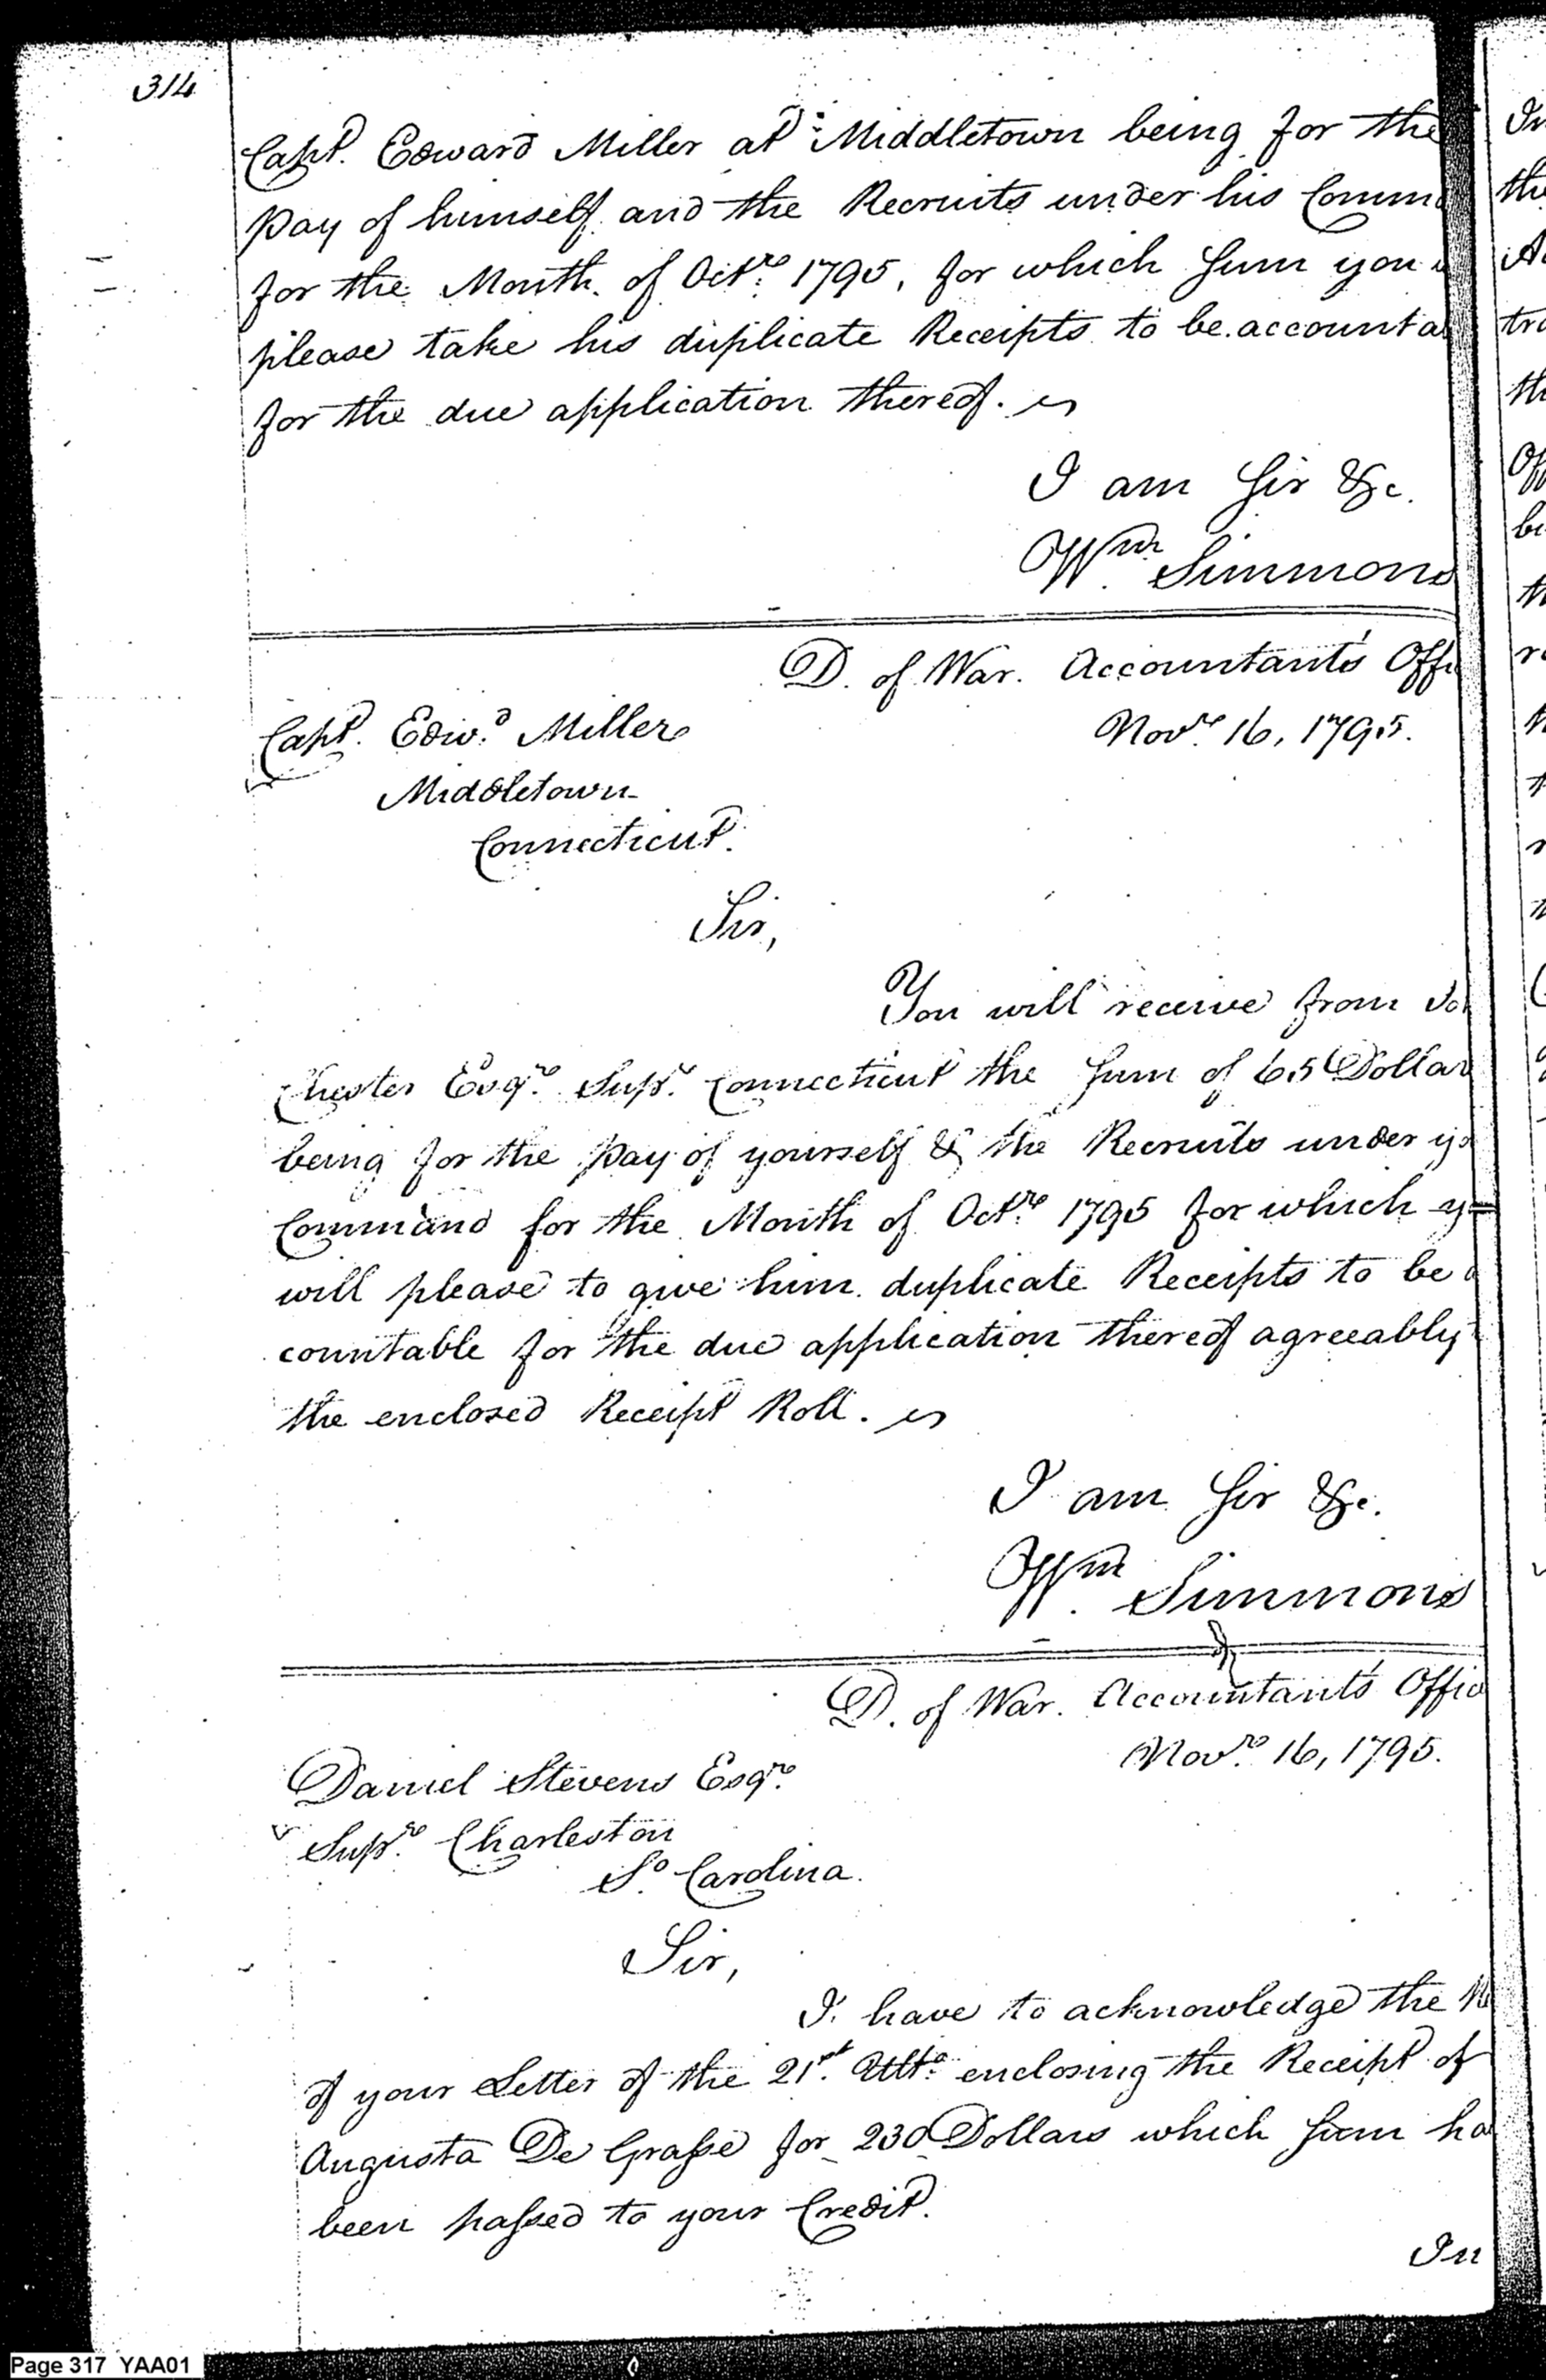 314
Capt. Edward Miller at Middletown being for the
pay of himself and the Recruits under his Comm
for the Month of Octre. 1795, for which Sum you
please take his duplicate Receipts to be accounta
for the due application thereof.
I am Sir &c.
Wm. Simmons
D. of War. Accountant's Offi
Novre. 16, 1795.
Capt. Edwd. Miller
Middletown
Connecticut.
Sir,
You will receive from Jo
Chester Esqre. Supr. Connecticut the Sum of 65 Dollar
being for the pay of yourself & the Recruits under yo
Command for the Month of Octre. 1795 for which y
will please to give him duplicate Receipts to be a
countable for the due application thereof agreeably
the enclosed Receipt Roll.
I am Sir &c.
Wm. Simmons
D. of War. Accountant's Offic
Novre. 16, 1795.
Daniel Stevens Esqre.
Supre. Charleston
So. Carolina.
Sir,
I have to acknowledge the Re
of your Letter of the 21st. Ulto. enclosing the Receipt of
Augusta De Grasse for 230 Dollars which Sum ha
been passed to your Credit.
In
Page 317 YAA01